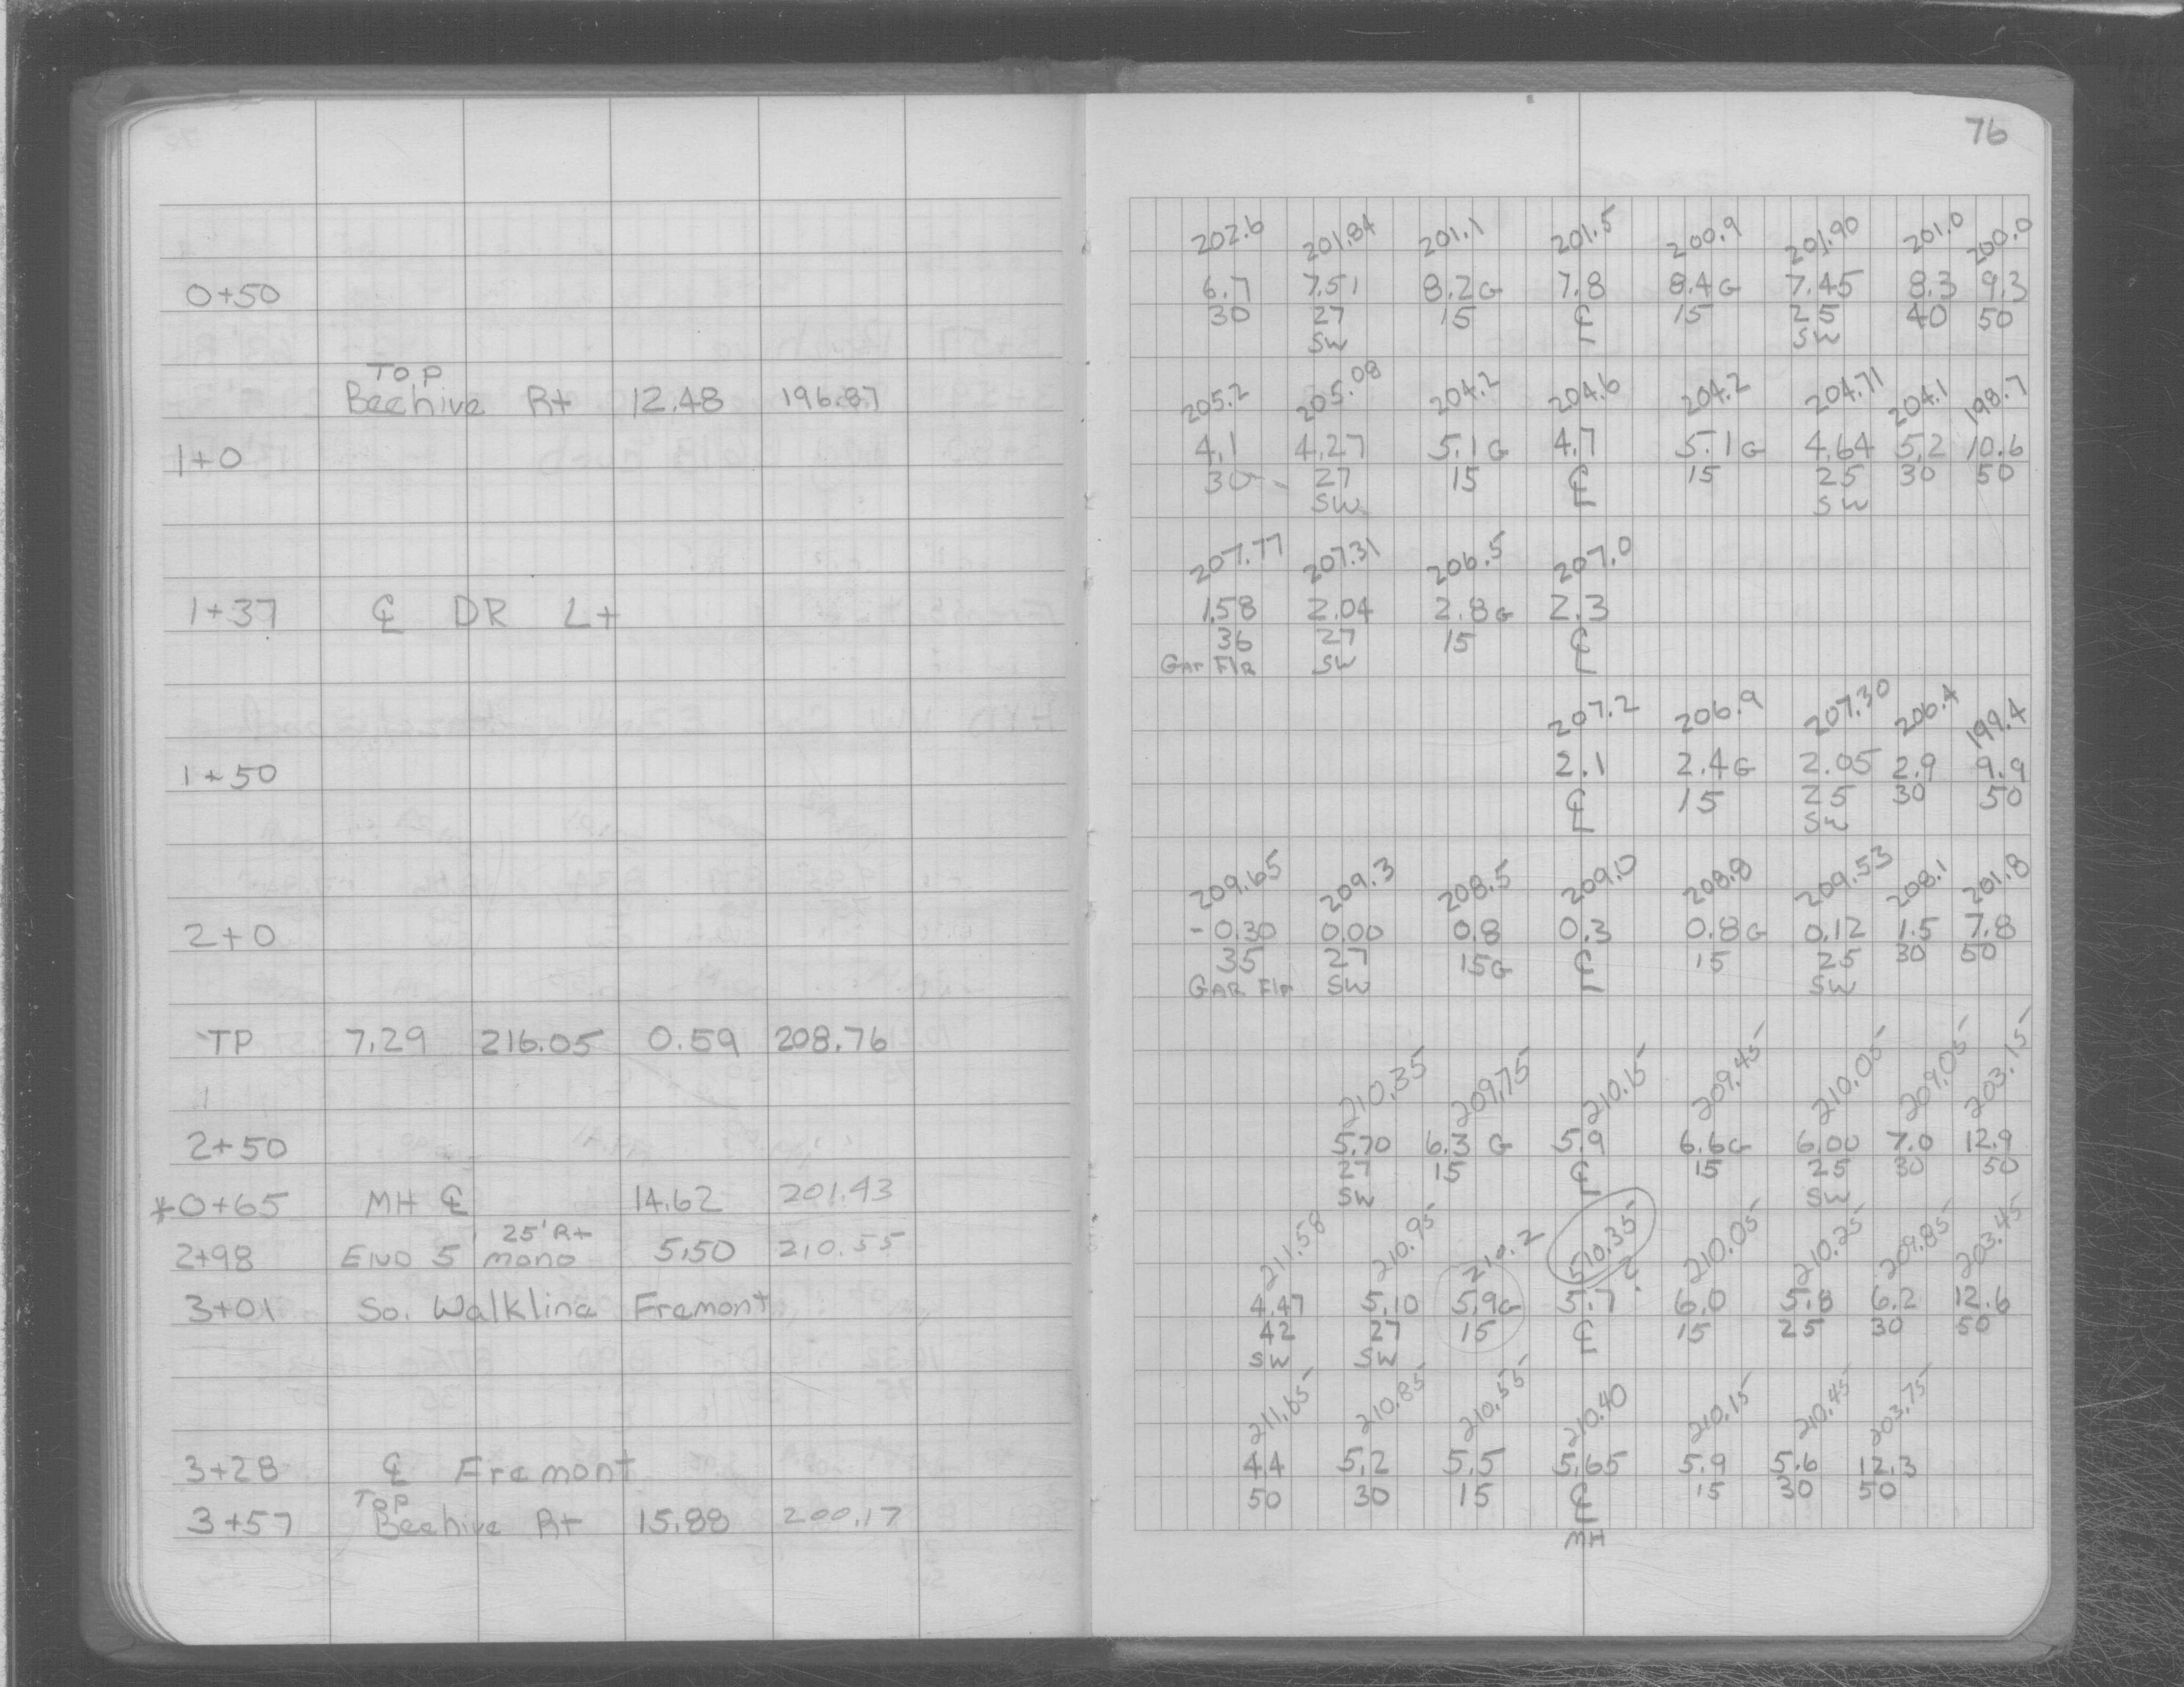 76
202.6 201.84 201.1 201.5 200.9 201.90 201.0 200.0
0+50 6.7 7.51 8.2G 7.8 8.4G 7.45 8.3 9.3
30 27 15 ℄ 15 25 40 50
SW SW
Top
Beehive Rt 12.48 196.87 205.2 205.08 204.2 204.6 204.2 204.71 204.1 198.7
1+0 4.1 4.27 5.1G 4.7 5.1G 4.64 5.2 10.6
30 27 15 ℄ 15 25 30 50
SW SW
207.77 207.31 206.5 207.0
1+37 ℄ DR Lt 1.58 2.04 2.8G 2.3
36 27 15 ℄
Gar Flr SW
207.2 206.9 207.30 206.4 199.4
1+50 2.1 2.4G 2.05 2.9 9.9
℄ 15 25 30 50
SW
209.65 209.3 208.5 209.0 208.8 209.53 208.1 201.8
2+0 -0.30 0.00 0.8 0.3 0.8G 0.12 1.5 7.8
35 27 15G ℄ 15 25 30 50
GAR Flr SW SW
TP 7.29 216.05 0.59 208.76
210.35 209.75 210.15 209.45 210.05 209.05 203.15
2+50 5.70 6.3 G 5.9 6.6G 6.00 7.0 12.9
27 15 ℄ 15 25 30 50
*0+65 MH ℄ 14.62 201.43 SW SW
25' Rt
2+98 END 5' mono 5.50 210.55 211.58 210.95 210.2 210.35 210.05 210.25 209.85 203.45
?
3+01 So. Walkline Fremont 4.47 5.10 5.9G 5.7 6.0 5.8 6.2 12.6
42 27 15 ℄ 15 25 30 50
SW SW
211.65 210.85 210.55 210.40 210.15 210.45 203.75
3+28 ℄ Fremont 4.4 5.2 5.5 5.65 5.9 5.6 12.3
50 30 15 ℄ 15 30 50
Top
3+57 Beehive Rt 15.88 200.17
MH